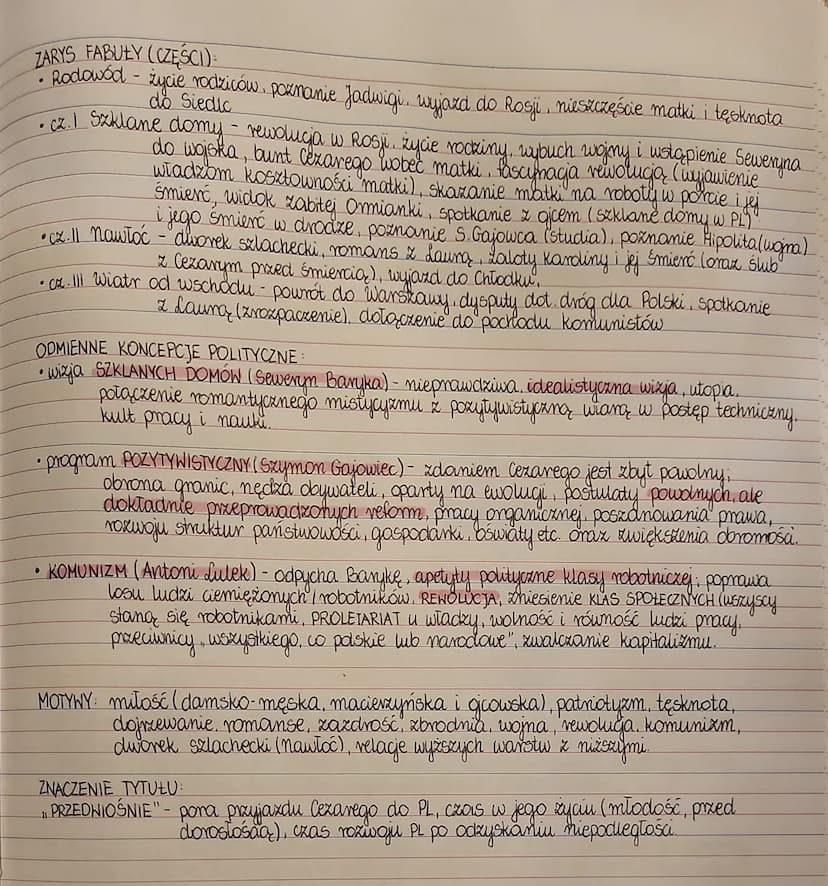 ZARYS FABUŁY (CZĘŚCI):
• Rodowód - życie rodziców, poznanie Jadwigi, wyjazd do Rosji, nieszczęście matki i tęsknota
do Siedlc
• cz. I Szklane domy - rewolucja w Rosji, życie rodziny, wybuch wojny i wstąpienie Seweryna
do wojska, bunt Cezarego wobec matki, fascynacja rewolucją (wyjawienie
władzom kosztowności matki), skazanie matki na roboty w porcie i jej
śmierć, widok zabitej Ormianki, spotkanie z ojcem (szklane domy w PL)
i jego śmierć w drodze, poznanie S. Gajowca (studia), poznanie Hipolita (wojna)
• cz. II Nawłoć - dworek szlachecki, romans z Laurą, zaloty Karoliny i jej śmierć (oraz ślub
z Cezarym przed śmiercią), wyjazd do Chłodku,
• cz. III Wiatr od wschodu - powrót do Warszawy, dysputy dot. dróg dla Polski, spotkanie
z Laurą (zrozpaczenie), dołączenie do pochodu komunistów
ODMIENNE KONCEPCJE POLITYCZNE:
• wizja SZKLANYCH DOMÓW (Seweryn Baryka) - nieprawdziwa, idealistyczna wizja, utopia,
połączenie romantycznego mistycyzmu z pozytywistyczną wiarą w postęp techniczny,
kult pracy i nauki.
• program POZYTYWISTYCZNY (Szymon Gajowiec) - zdaniem Cezarego jest zbyt powolny;
obrona granic, nędza obywateli, oparty na ewolucji, postulaty powolnych, ale
dokładnie przeprowadzonych reform, pracy organicznej, poszanowania prawa,
rozwoju struktur państwowości, gospodarki, oświaty etc. oraz zwiększenia obronności.
• KOMUNIZM (Antoni Lulek) - odpycha Barykę, apetyty polityczne klasy robotniczej, poprawa
losu ludzi ciemiężonych/robotników, REWOLUCJA, zniesienie KLAS SPOŁECZNYCH (wszyscy
staną się robotnikami, PROLETARIAT u władzy, wolność i równość ludzi pracy,
przeciwnicy „wszystkiego, co polskie lub narodowe", zwalczanie kapitalizmu.
MOTYWY: miłość (damsko-męska, macierzyńska i ojcowska), patriotyzm, tęsknota,
dojrzewanie, romanse, zazdrość, zbrodnia, wojna, rewolucja, komunizm,
dworek szlachecki (Nawłoć), relacje wyższych warstw z niższymi.
ZNACZENIE TYTUŁU:
„PRZEDWIOŚNIE" - pora przyjazdu Cezarego do PL, czas w jego życiu (młodość, przed
dorosłością), czas rozwoju PL po odzyskaniu niepodległości.